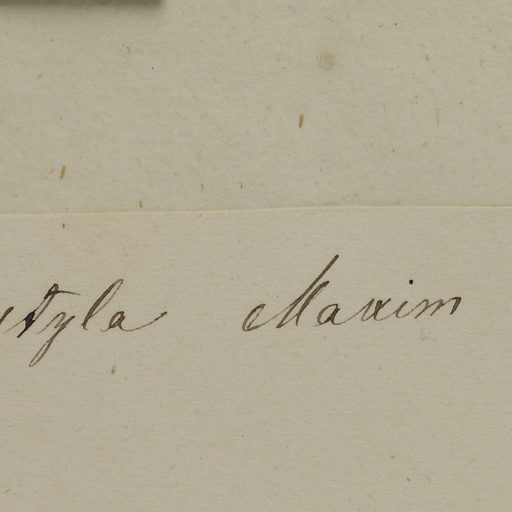 styla Maxim